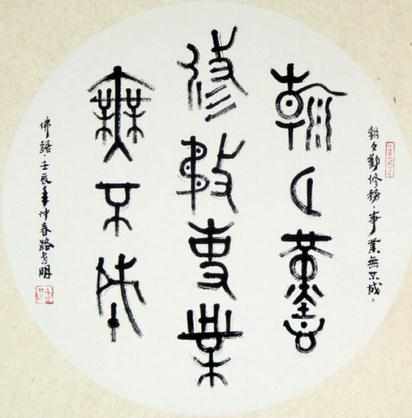 朝夕勤修務·事業無不成。
朝夕勤
修務事業
無不成
佛語·壬辰年仲春路明